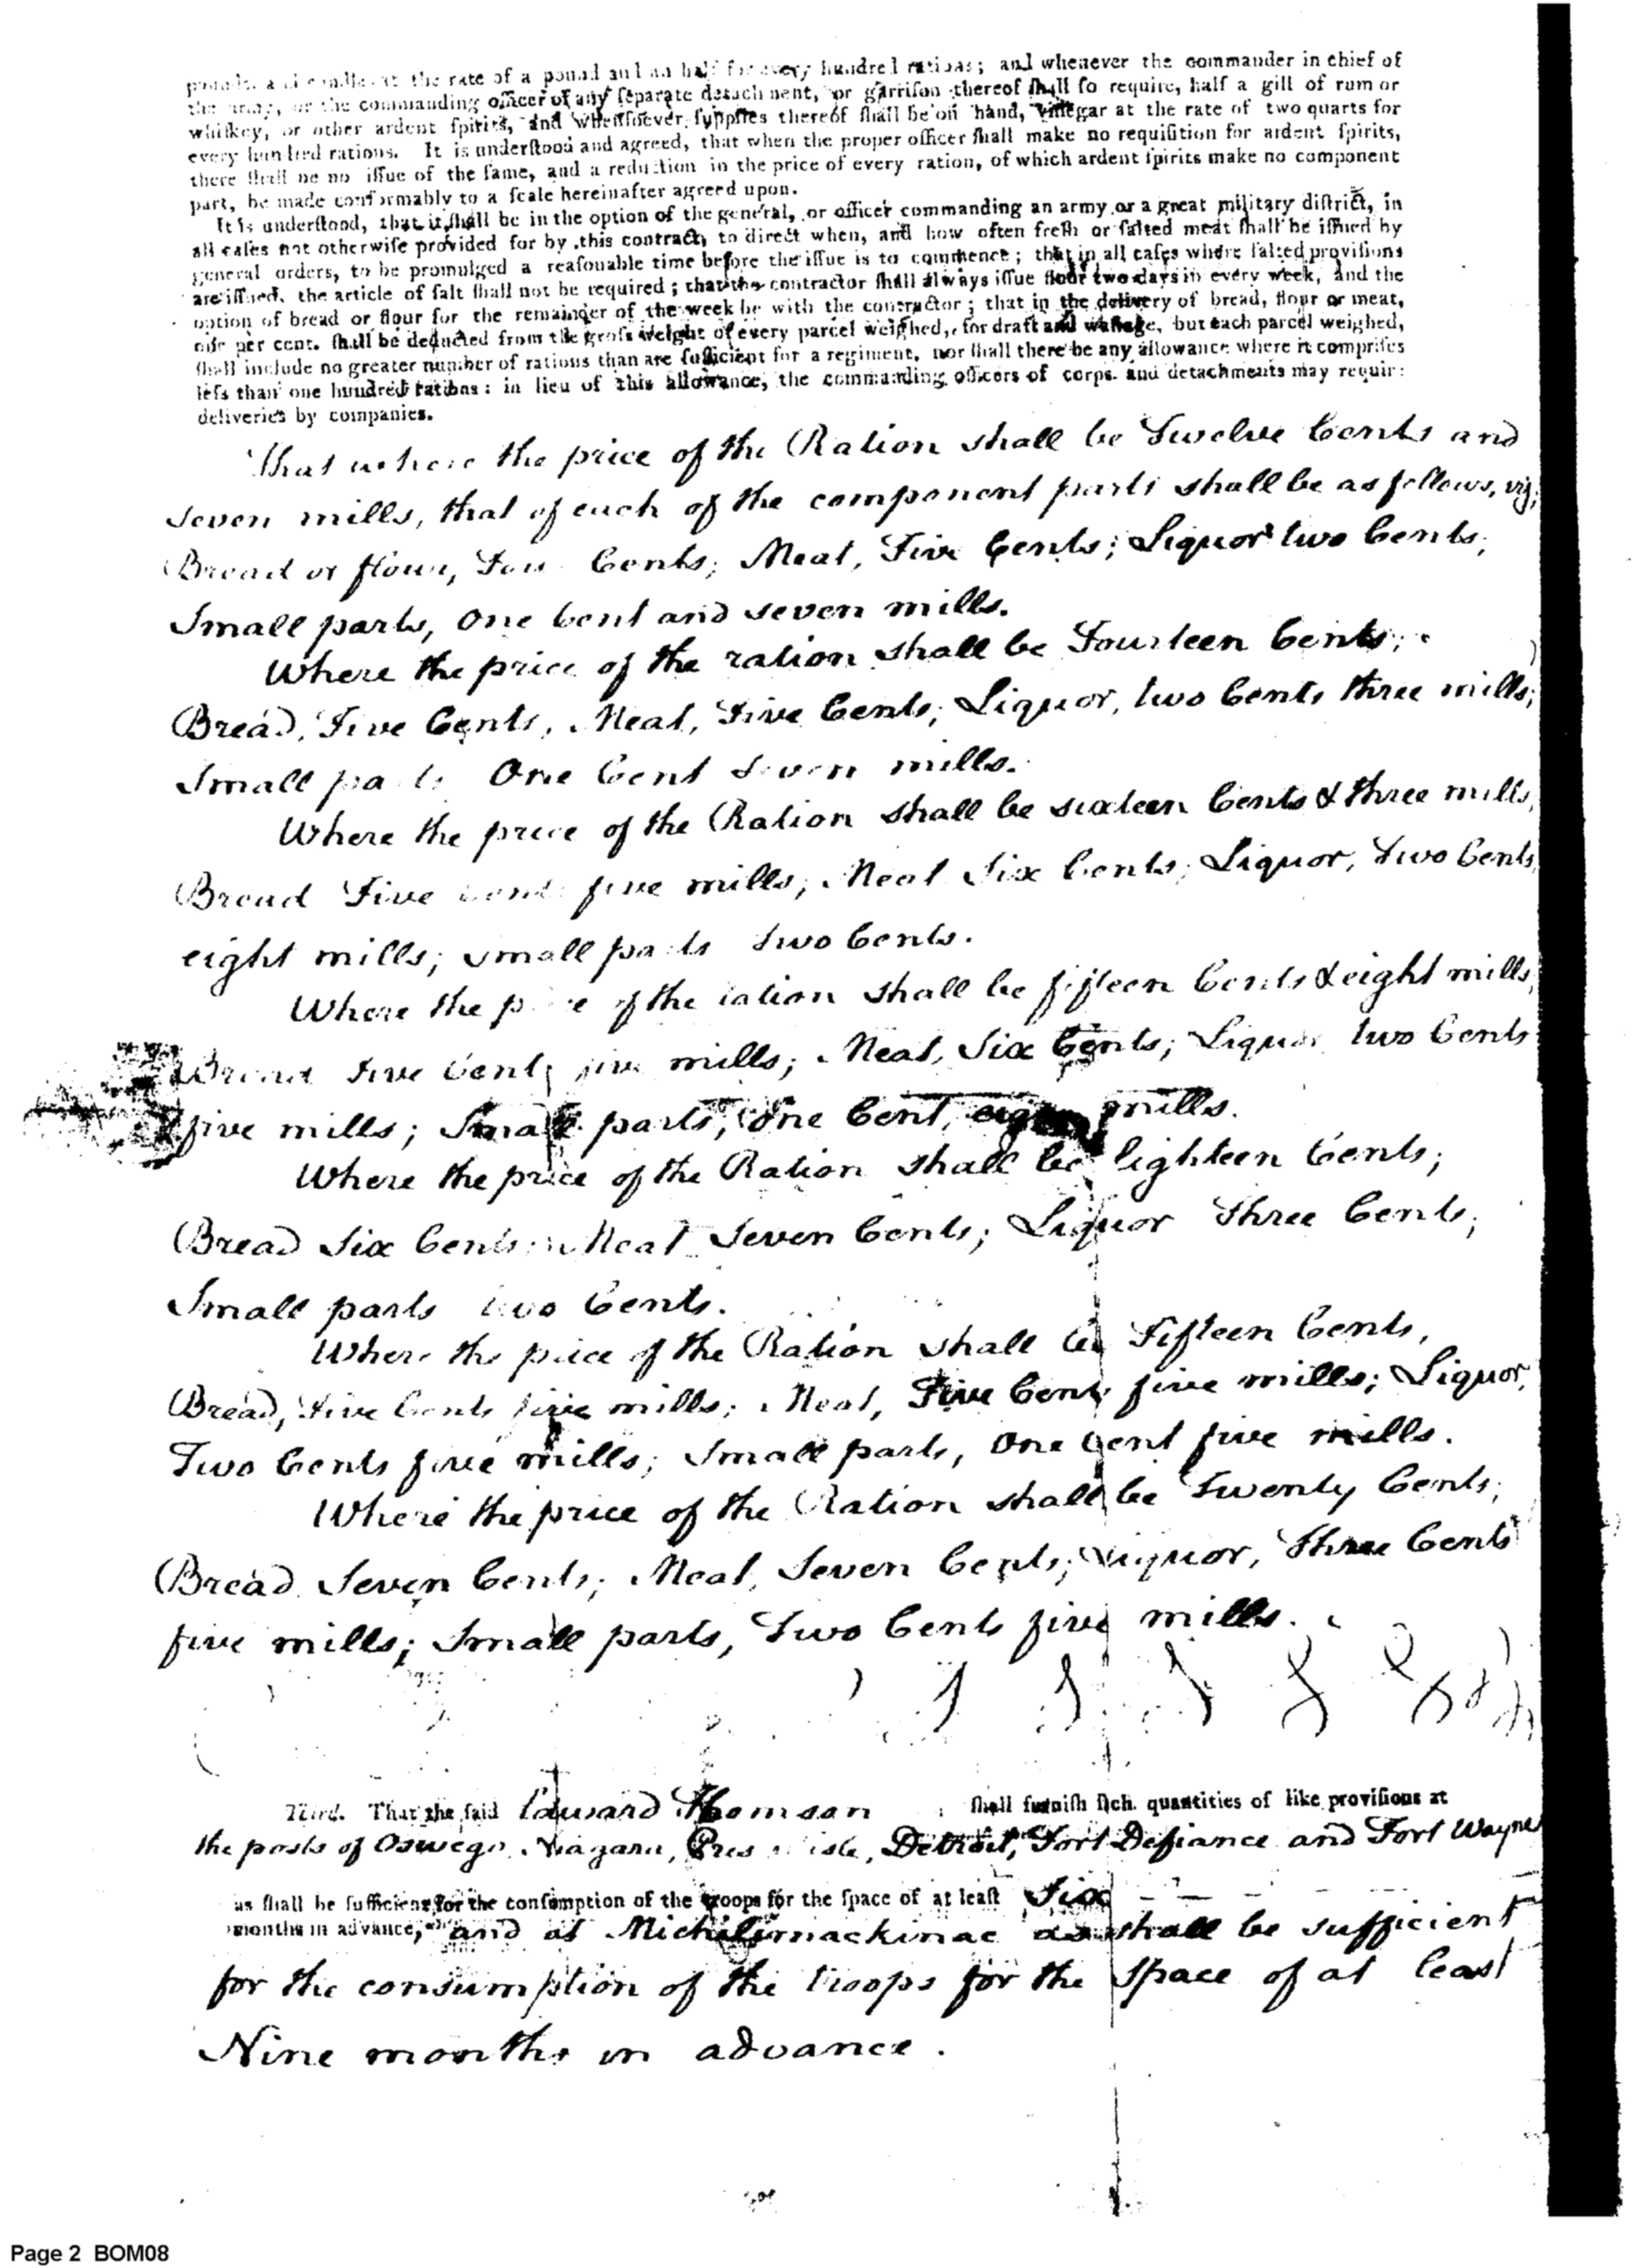 the rate of a pound and an half for every hundred rations; and whenever the commander in chief of
the army, or the commanding officer of any ſeparate detachment, or garriſon thereof ſhall ſo require, half a gill of rum or
whiſkey, or other ardent ſpirits, and whenſoever ſupplies thereof ſhall be on hand, vinegar at the rate of two quarts for
every hundred rations. It is underſtood and agreed, that when the proper officer ſhall make no requiſition for ardent ſpirits,
there ſhall be no iſſue of the ſame, and a reduction in the price of every ration, of which ardent ſpirits make no component
part, be made conformably to a ſcale hereinafter agreed upon.
It is underſtood, that it ſhall be in the option of the general, or officer commanding an army or a great military diſtrict, in
all caſes not otherwiſe provided for by this contract, to direct when, and how often freſh or ſalted meat ſhall be iſſued by
general orders, to be promulged a reaſonable time before the iſſue is to commence; that in all caſes where ſalted proviſions
are iſſued, the article of ſalt ſhall not be required; that the contractor ſhall always iſſue flour two days in every week, and the
option of bread or flour for the remainder of the week be with the contractor; that in the delivery of bread, flour or meat,
per cent. ſhall be deducted from the groſs weight of every parcel weighed, for draft and waſtage, but each parcel weighed,
ſhall include no greater number of rations than are ſufficient for a regiment, nor ſhall there be any allowance where it compriſes
leſs than one hundred rations: in lieu of this allowance, the commanding officers of corps and detachments may require
deliveries by companies.
That where the price of the Ration shall be Twelve Cents and
seven mills, that of each of the component parts shall be as follows, viz;
Bread or flour, Four Cents; Meat, Five Cents; Liquor two Cents;
Small parts, One Cent and seven mills.
Where the price of the ration shall be Fourteen Cents;
Bread, Five Cents, Meat, Five Cents; Liquor, two Cents three mills;
Small parts One Cent Seven mills.
Where the price of the Ration shall be sixteen Cents & three mills,
Bread Five Cents five mills; Meat Six Cents; Liquor, Two Cents
eight mills; small parts Two Cents.
Where the price of the ration shall be fifteen Cents & eight mills,
Bread Five Cents five mills; Meat, Six Cents; Liquor two Cents
five mills; Small parts, One Cent, eight mills.
Where the price of the Ration shall be Eighteen Cents;
Bread Six Cents; Meat Seven Cents; Liquor Three Cents;
Small parts two Cents.
Where the price of the Ration shall be Fifteen Cents,
Bread, Five Cents five mills; Meat, Five Cents five mills; Liquor,
Two Cents five mills; Small parts, One Cent five mills.
Where the price of the Ration shall be Twenty Cents;
Bread Seven Cents; Meat, Seven Cents; Liquor, Three Cents
five mills; Small parts, Two Cents five mills.
Third. That the ſaid Edward Thomson ſhall furniſh ſuch quantities of like proviſions at
the posts of Oswego, Niagara, Presqu'isle, Detroit, Fort Defiance and Fort Wayne
as ſhall be ſufficient for the conſumption of the troops for the ſpace of at leaſt Six
months in advance, and at Michilimackinac as shall be sufficient
for the consumption of the troops for the space of at least
Nine months in advance.
Page 2 BOM08